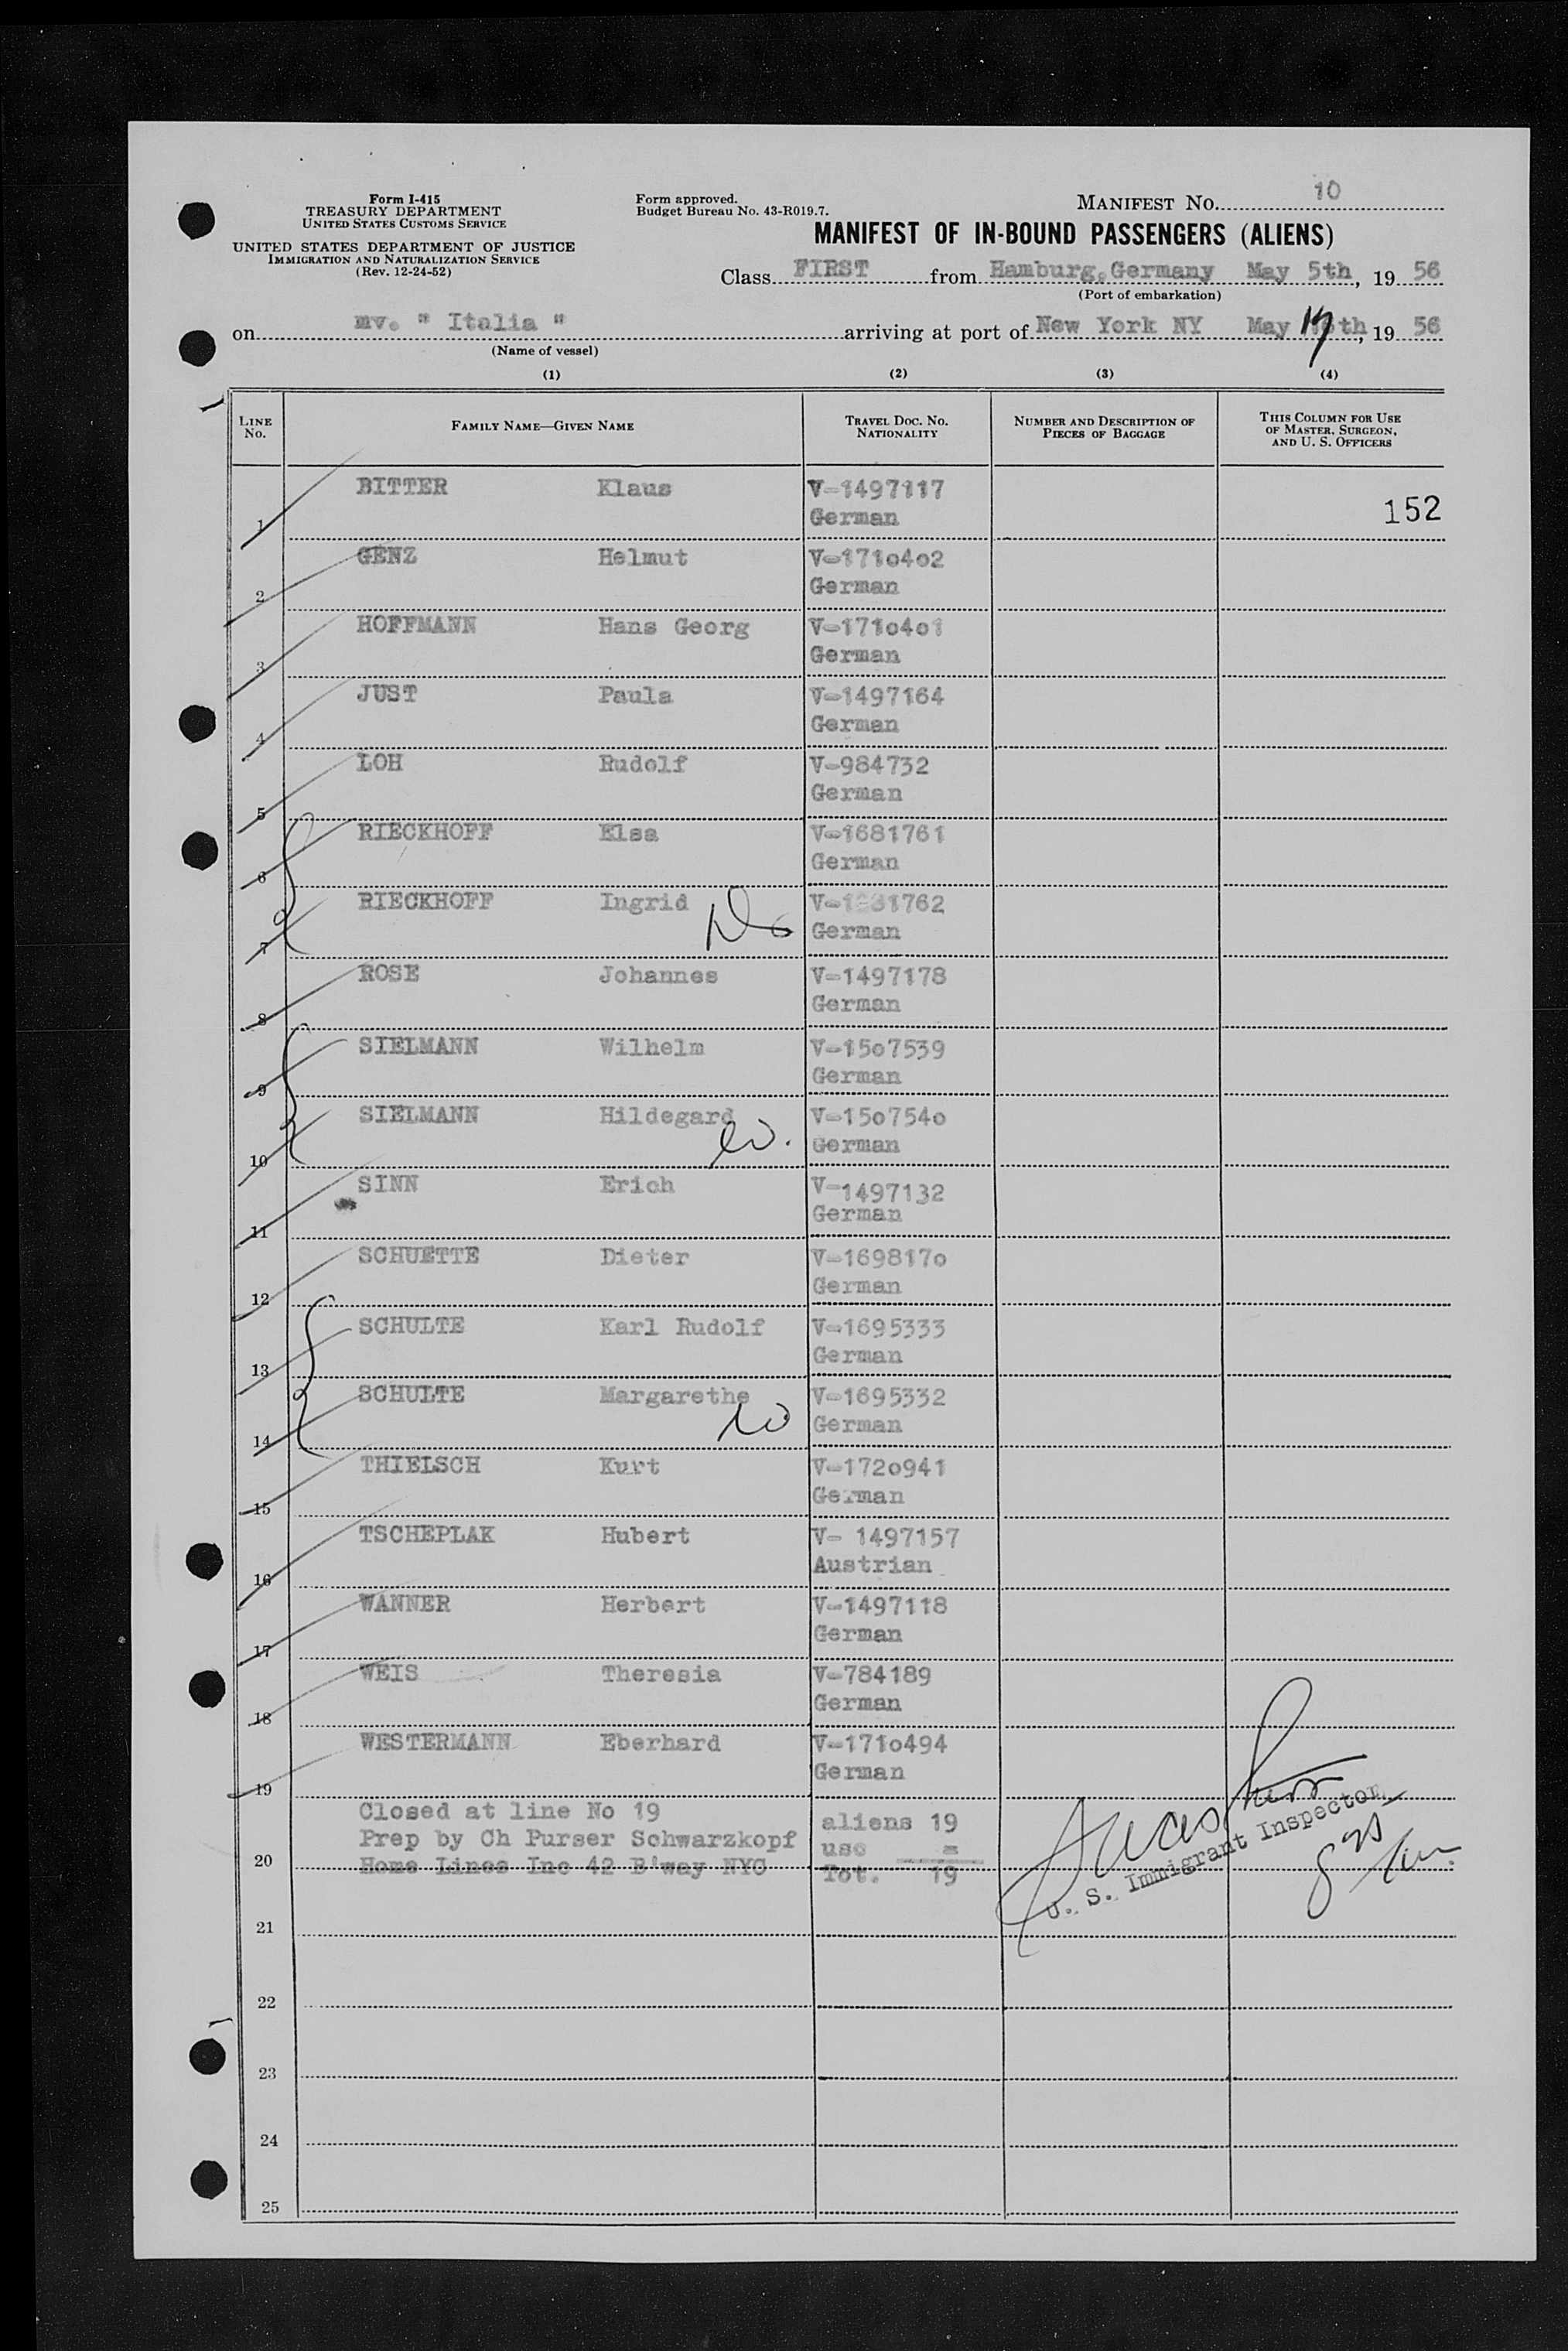 Form I-415
TREASURY DEPARTMENT
UNITED STATES CUSTOMS SERVICE
UNITED STATES DEPARTMENT OF JUSTICE
IMMIGRATION AND NATURALIZATION SERVICE
(Rev. 12-24-52)
Form approved.
Budget Bureau No. 43-R019.7.
MANIFEST No. 10
MANIFEST OF IN-BOUND PASSENGERS (ALIENS)
Class FIRST from Hamburg, Germany May 5th, 19 56
(Port of embarkation)
on mv. " Italia " arriving at port of New York NY May 17 th, 19 56
(Name of vessel)
(1) (2) (3) (4)
LINE No. FAMILY NAME—GIVEN NAME TRAVEL DOC. NO. NATIONALITY NUMBER AND DESCRIPTION OF PIECES OF BAGGAGE THIS COLUMN FOR USE OF MASTER, SURGEON, AND U. S. OFFICERS
1 BITTER Klaus V-1497117
German 152
2 GENZ Helmut V-1710402
German
3 HOFFMANN Hans Georg V-1710401
German
4 JUST Paula V-1497164
German
5 LOH Rudolf V-984732
German
6 RIECKHOFF Elsa V-1681761
German
7 RIECKHOFF Ingrid V-1681762
German
8 ROSE Johannes V-1497178
German
9 SIELMANN Wilhelm V-1507539
German
10 SIELMANN Hildegard V-1507540
German
11 SINN Erich V-1497132
German
12 SCHUETTE Dieter V-1698170
German
13 SCHULTE Karl Rudolf V-1695333
German
14 SCHULTE Margarethe V-1695332
German
15 THIELSCH Kurt V-1720941
German
16 TSCHEPLAK Hubert V- 1497157
Austrian
17 WANNER Herbert V-1497118
German
18 WEIS Theresia V-784189
German
19 WESTERMANN Eberhard V-1710494
German
Closed at line No 19 aliens 19
Prep by Ch Purser Schwarzkopf usc =
20 Home Lines Inc 42 B'way NYC Tot. 19
U. S. Immigrant Inspector
21
22
23
24
25